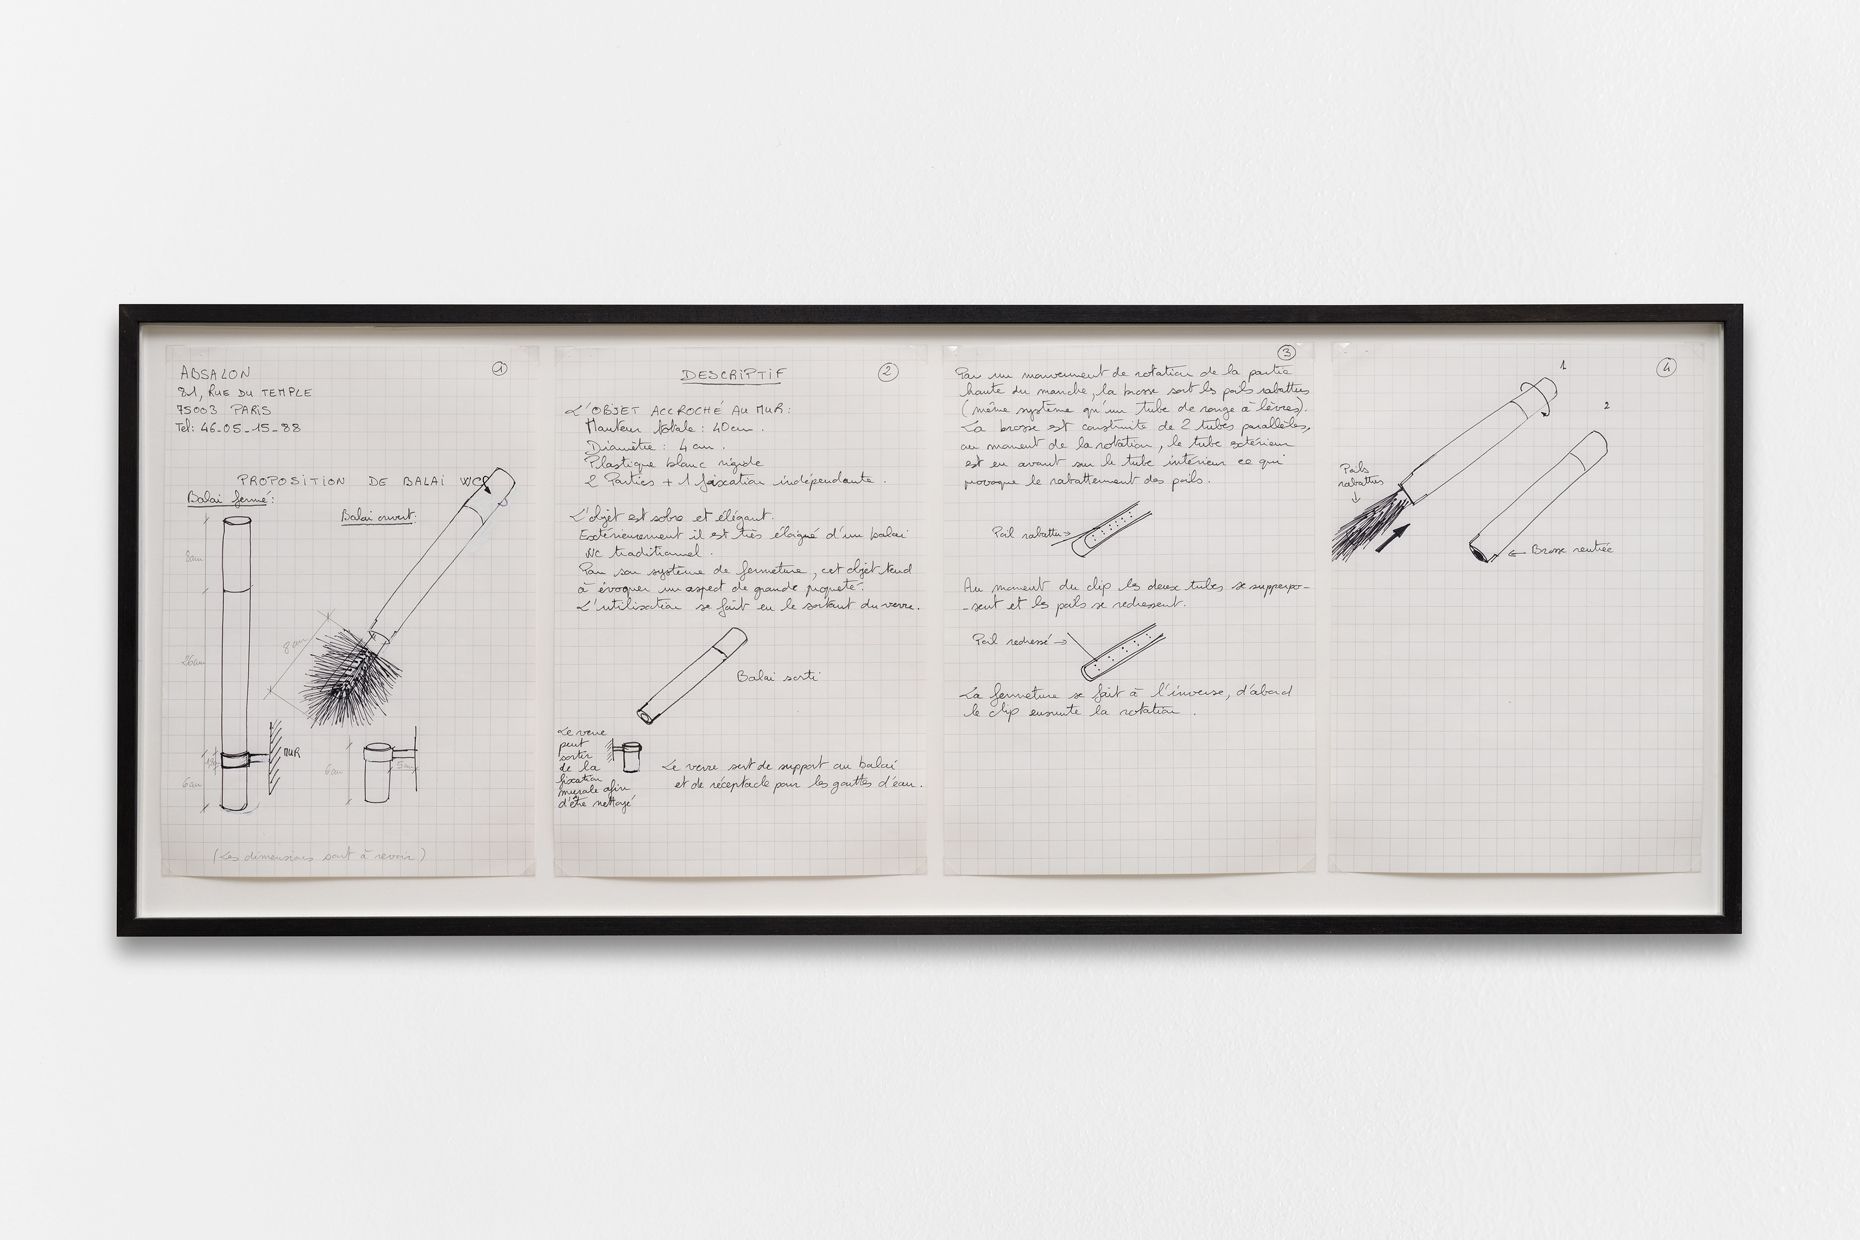 ABSALON
81, RUE DU TEMPLE
75003 PARIS
Tél: 46-05-15-88
1
PROPOSITION DE BALAI WC
Balai fermé:
Balai ouvert:
8cm
26cm
8cm
MUR
6cm
6cm
5cm
(Les dimensions sont à revoir)
2
DESCRIPTIF
L'OBJET ACCROCHÉ AU MUR:
Hauteur totale : 40cm.
Diamètre : 4cm.
Plastique blanc rigide
2 Parties + 1 fixation indépendante.
L'objet est sobre et élégant.
Extérieurement il est très éloigné d'un balai
WC traditionnel.
Par son système de fermeture, cet objet tend
à évoquer un aspect de grande propreté.
L'utilisation se fait en le sortant du verre.
Balai sorti
Le verre
peut
sortir
de la
fixation
murale afin
d'être nettoyé
Le verre sert de support au balai
et de réceptacle pour les gouttes d'eau.
3
Par un mouvement de rotation de la partie
haute du manche, la brosse sort les poils rabattus
(même système qu'un tube de rouge à lèvres).
La brosse est construite de 2 tubes parallèles,
au moment de la rotation, le tube extérieur
est en avant sur le tube intérieur ce qui
provoque le rabattement des poils.
Poil rabattu
Au moment du clip les deux tubes se supperpo-
-sent et les poils se redressent.
Poil redressé
La fermeture se fait à l'inverse, d'abord
le clip ensuite la rotation.
4
1
2
Poils
rabattus
Brosse rentrée